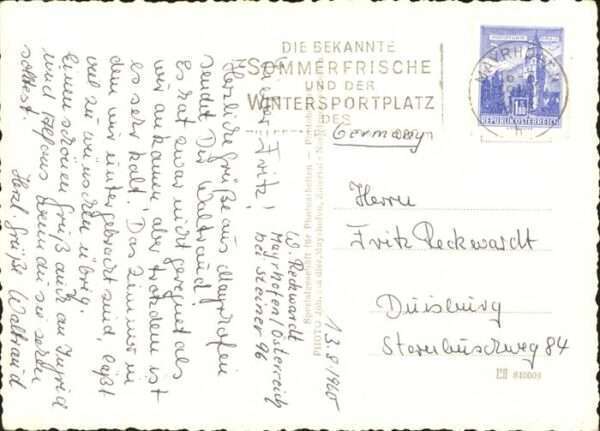 DIE BEKANNTE
SOMMERFRISCHE
UND DER
WINTERSPORTPLATZ
DES
MAYRHOFEN
REPUBLIK ÖSTERREICH
Germany
Herrn
Fritz Reckwardt
Duisburg
Sternbuschweg 84
840003
13.8.1965
W. Reckwardt
Mayrhofen/Österreich
bei Steiner 96
Lieber Fritz!
Herzliche Grüße aus Mayrhofen
sendet Dir Waltraud!
Es hat zwar nicht geregnet als
wir ankamen, aber trotzdem ist
es sehr kalt. Das Zimmer in
dem wir untergebracht sind, läßt
viel zu wünschen übrig.
Einen schönen Gruß auch an Ingrid
und Alfons wenn du sie sehen
solltest.
Herzl. Grüße Waltraud